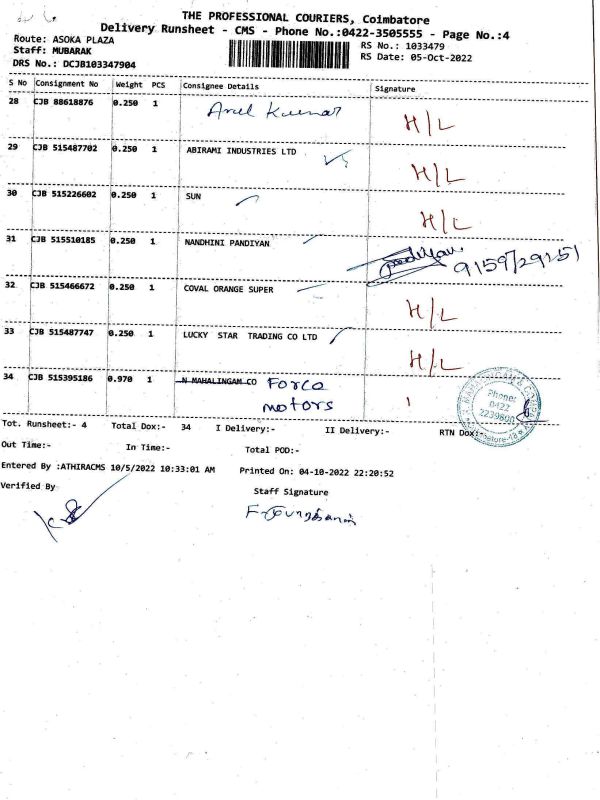 THE PROFESSIONAL COURIERS, Coimbatore
Delivery Runsheet - CMS - Phone No.:0422-3505555 - Page No.:4
Route: ASOKA PLAZA
RS No.: 1033479
Staff: MUBARAK
RS Date: 05-Oct-2022
DRS No.: DCJB103347904
S No Consignment No Weight PCS Consignee Details Signature
28 CJB 88618876 0.250 1 Arul Kumar H/L
29 CJB 515487702 0.250 1 ABIRAMI INDUSTRIES LTD H/L
30 CJB 515226602 0.250 1 SUN H/L
31 CJB 515510185 0.250 1 NANDHINI PANDIYAN 9159729151
32 CJB 515466672 0.250 1 COVAL ORANGE SUPER H/L
33 CJB 515487747 0.250 1 LUCKY STAR TRADING CO LTD H/L
34 CJB 515395186 0.970 1 N MAHALINGAM CO Force
motors
Phone:
0422
2239800
Tot. Runsheet:- 4 Total Dox:- 34 I Delivery:- II Delivery:- RTN Dox:-
Out Time:- In Time:- Total POD:-
Entered By :ATHIRACMS 10/5/2022 10:33:01 AM Printed On: 04-10-2022 22:20:52
Verified By
Staff Signature